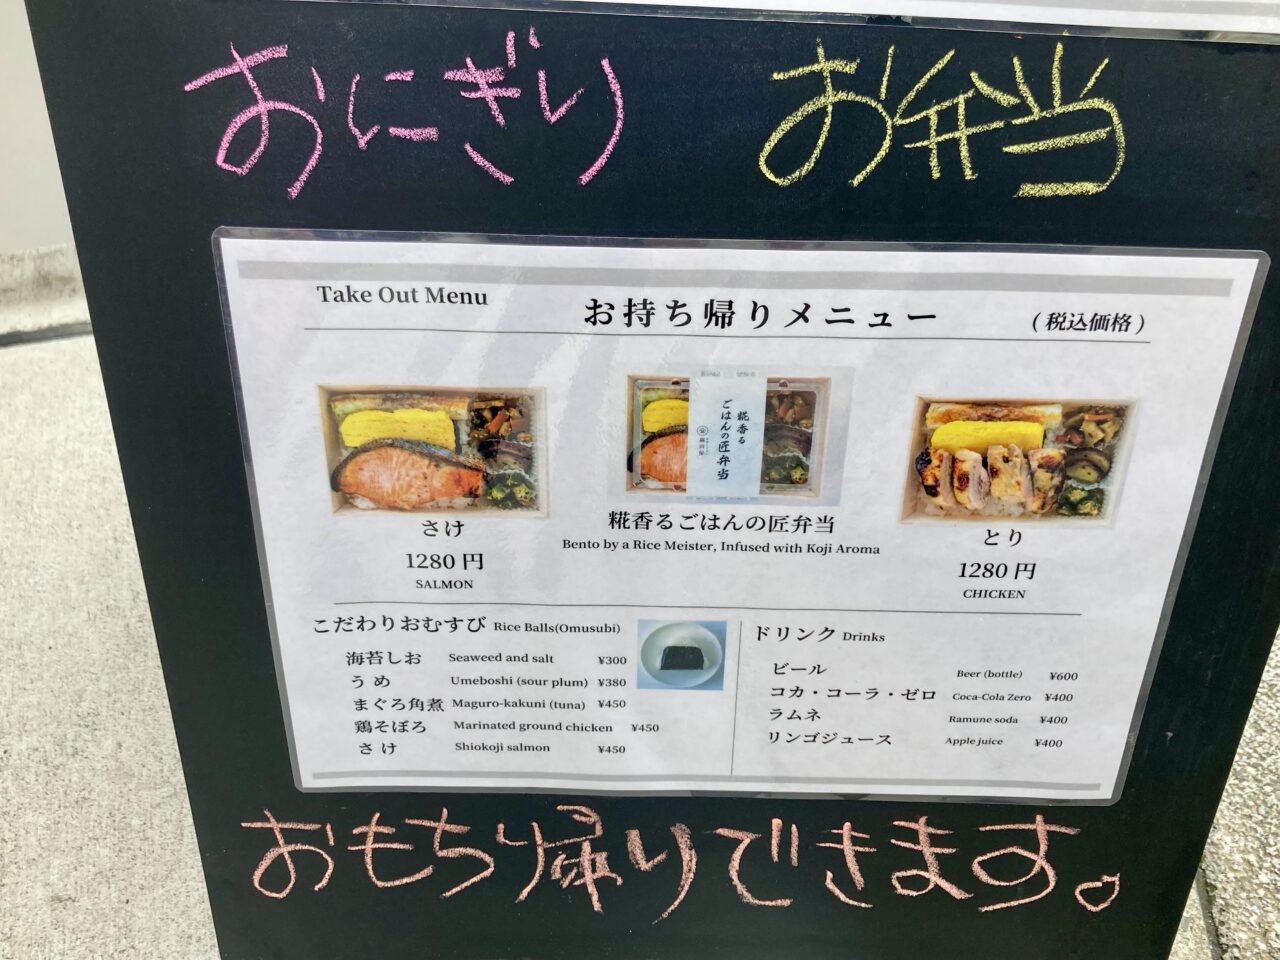 おにぎり お弁当
Take Out Menu お持ち帰りメニュー (税込価格)
糀香る
ごはんの匠弁当
さけ
1280円
SALMON
糀香るごはんの匠弁当
Bento by a Rice Meister, Infused with Koji Aroma
とり
1280円
CHICKEN
こだわりおむすび Rice Balls(Omusubi)
海苔しお Seaweed and salt ¥300
うめ Umeboshi (sour plum) ¥380
まぐろ角煮 Maguro-kakuni (tuna) ¥450
鶏そぼろ Marinated ground chicken ¥450
さけ Shiokoji salmon ¥450
ドリンク Drinks
ビール Beer (bottle) ¥600
コカ・コーラ・ゼロ Coca-Cola Zero ¥400
ラムネ Ramune soda ¥400
リンゴジュース Apple juice ¥400
おもち帰りできます。